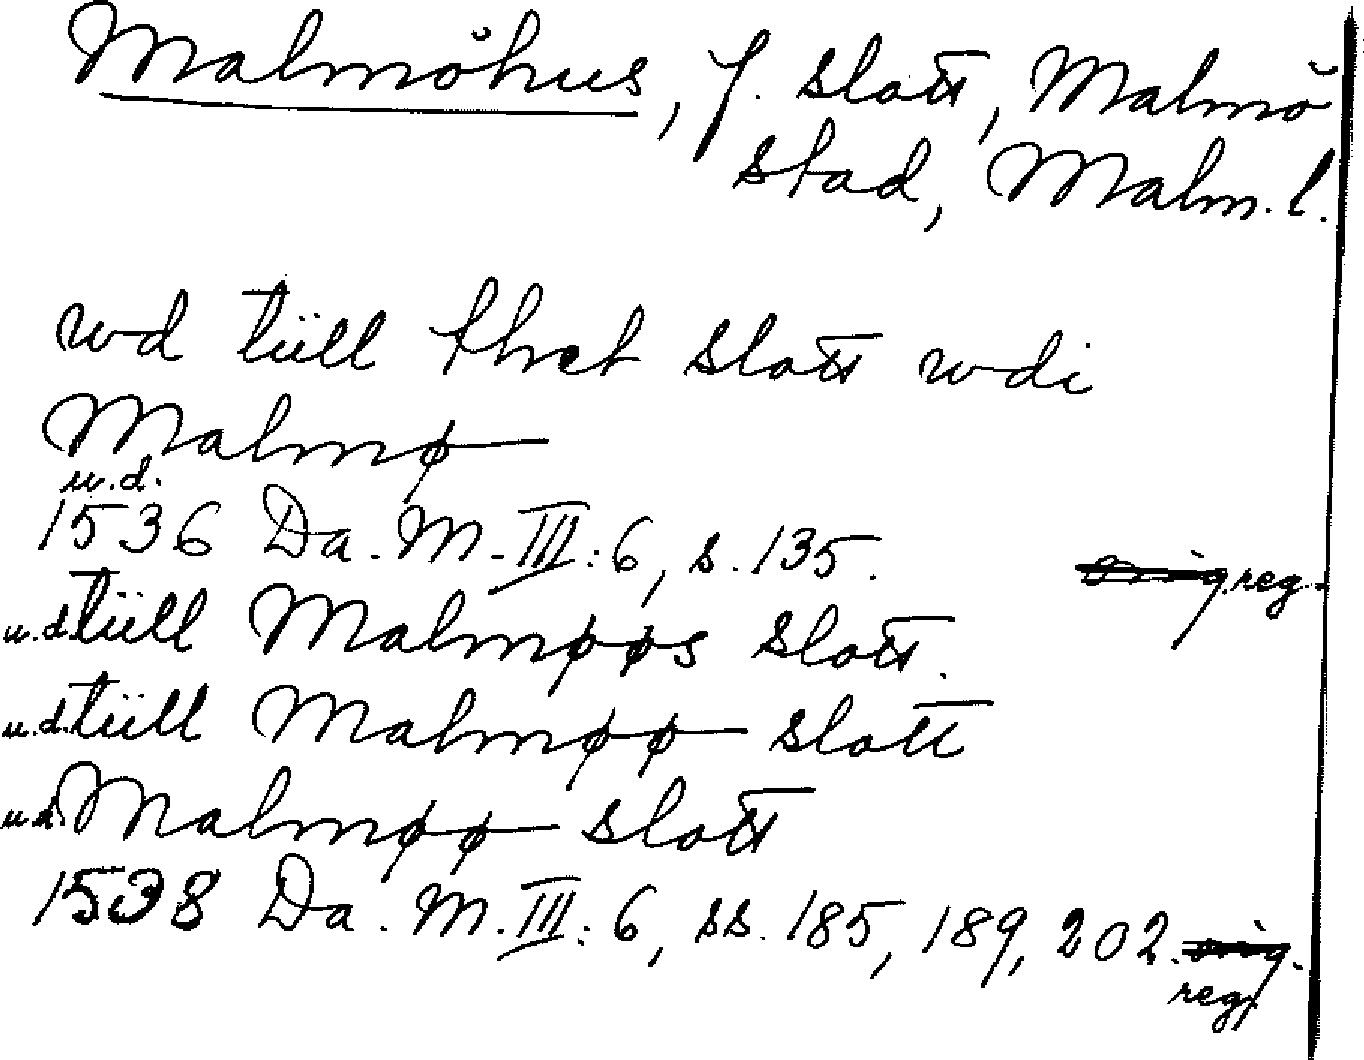 Malmöhus, f. slott, Malmö
stad, Malm. l.
wd tüll thet slott wdi
Malmø
u.d.
1536 Da. M. III: 6, s. 135. orig reg.
u.d. tüll Malmøøs slott.
u.d. tüll Malmøø slott
u.d. Malmøø slott
1538 Da. M. III: 6, ss. 185, 189, 202. orig.
reg.